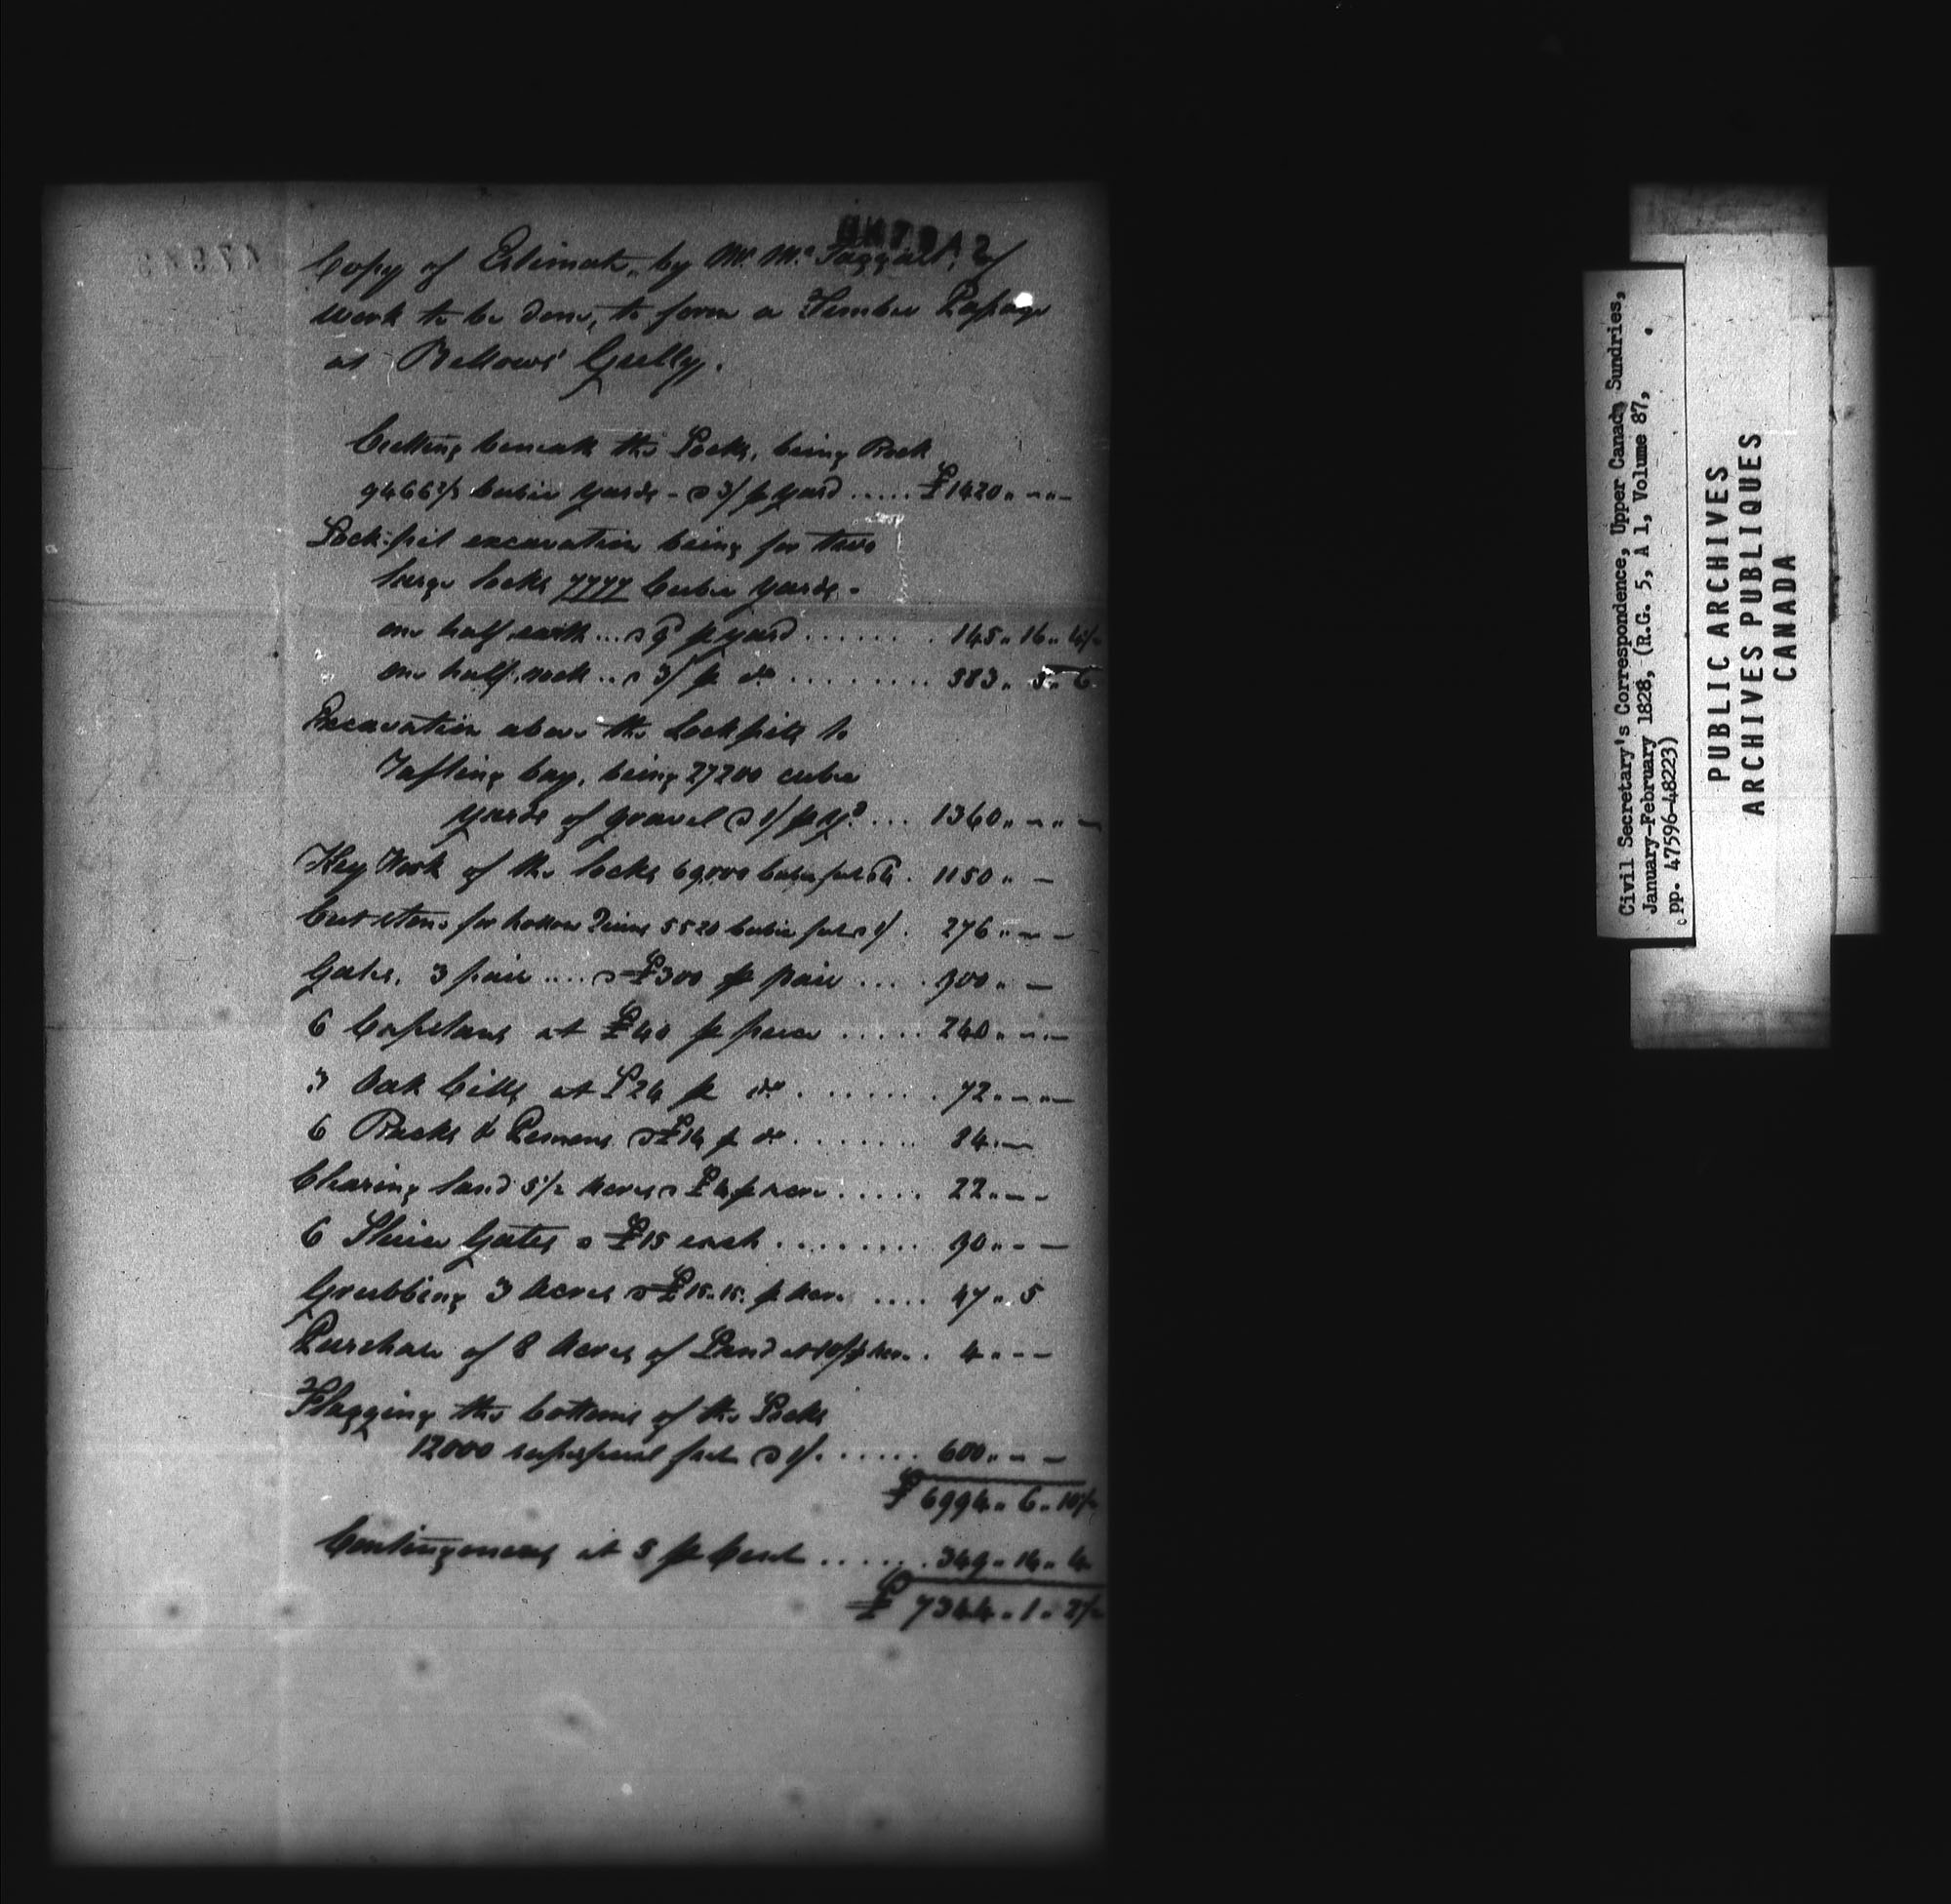 Copy of Estimate, by Mr. McTaggart, of
work to be done, to form a Timber Passage
at Bellows' Gully.
Cutting beneath the Locks, being Rock
9466 2/3 Cubic Yards - @ 3/ p yard ..... £1420 " - " -
Lock-pit excavation being for two
large locks 7777 Cubic Yards -
one half earth ... @ 9d p yard ....... 145 " 16 " 4 1/2
one half rock ... @ 3/ p do ........ 583 " 5 " 6
Excavation above the Lockpits to
bay, being 27200 cubic
yards of gravel @ 1/ p Yd. ... 1360 " - " -
Key Work of the locks 69,000 Cubic feet @ 4d . 1150 " -
Cut stone for hollow Quoins 5520 Cubic feet @ 1/ . 276 " - -
Gates, 3 pair .... @ £300 p pair .... 900 " -
6 Capstans at £40 p piece ..... 240 " - " -
3 Oak Cills, at £24 p do ....... 72 " - " -
6 Racks & Pinions @ £14 p do ....... 84 " -
Clearing land 5 1/2 Acres @ £4 p acre ..... 22 " - -
6 Sluice Gates @ £15 each ........ 90 " - -
Grubbing 3 Acres @ £15 " 15 " p Acre .... 47 " 5
Purchase of 8 Acres of Land at 10/ p Acre . . 4 " - -
Flagging the bottoms of the Locks
12000 superficial feet @ 1/. ..... 600 " - -
£ 6994 " 6 " 10 1/2
Contingencies at 5 p Cent ...... 349 " 14 " 4
£ 7344 " 1 " 2 1/2
Civil Secretary's Correspondence, Upper Canada Sundries,
January-February 1828, (R.G. 5, A 1, Volume 87,
pp. 47596-48223)
PUBLIC ARCHIVES
ARCHIVES PUBLIQUES
CANADA